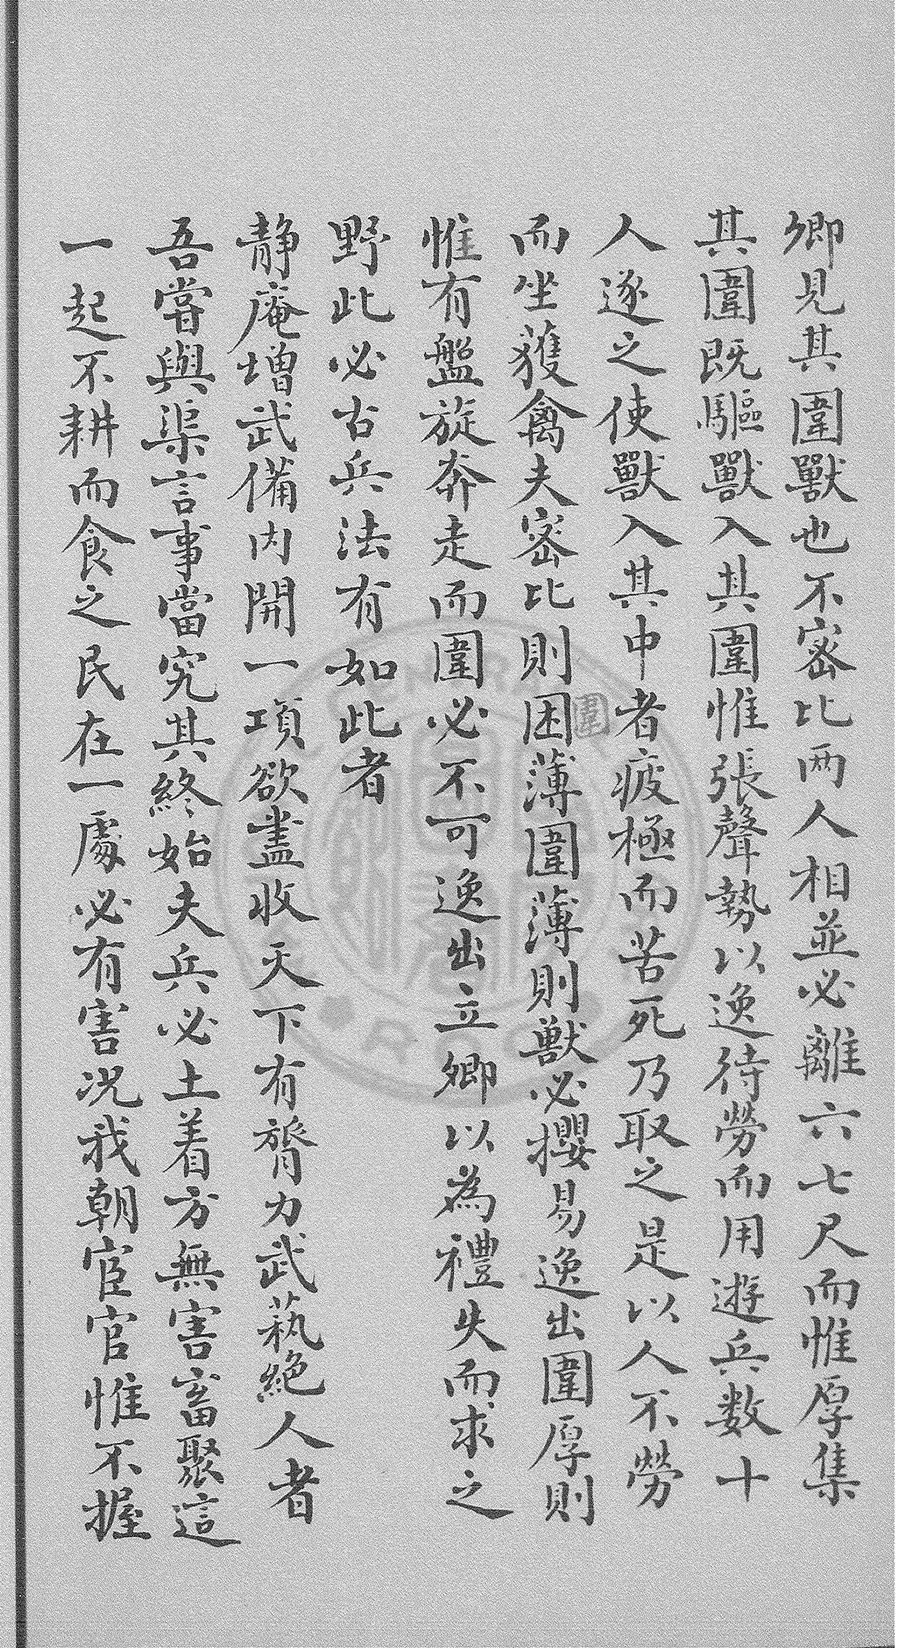 卿見其圍獸也不密比两人相並必離六七尺而惟厚集
其圍既驅獸入其圍惟張聲勢以逸待勞而用遊兵数十
人逐之使獸入其中者疲極而苦死乃取之是以人不勞
而坐獲禽夫密比則困薄圍薄則獸必攖易逸出圍厚則
圍
惟有盤旋奔走而圍必不可逸出立卿以為禮失而求之
野此必古兵法有如此者
静庵增武備内開一項欲盡收天下有膂力武藝絶人者
吾嘗與渠言事當究其終始夫兵必土着方無害畜聚這
一起不耕而食之民在一處必有害况我朝宦官惟不握
CENTRA
ROC